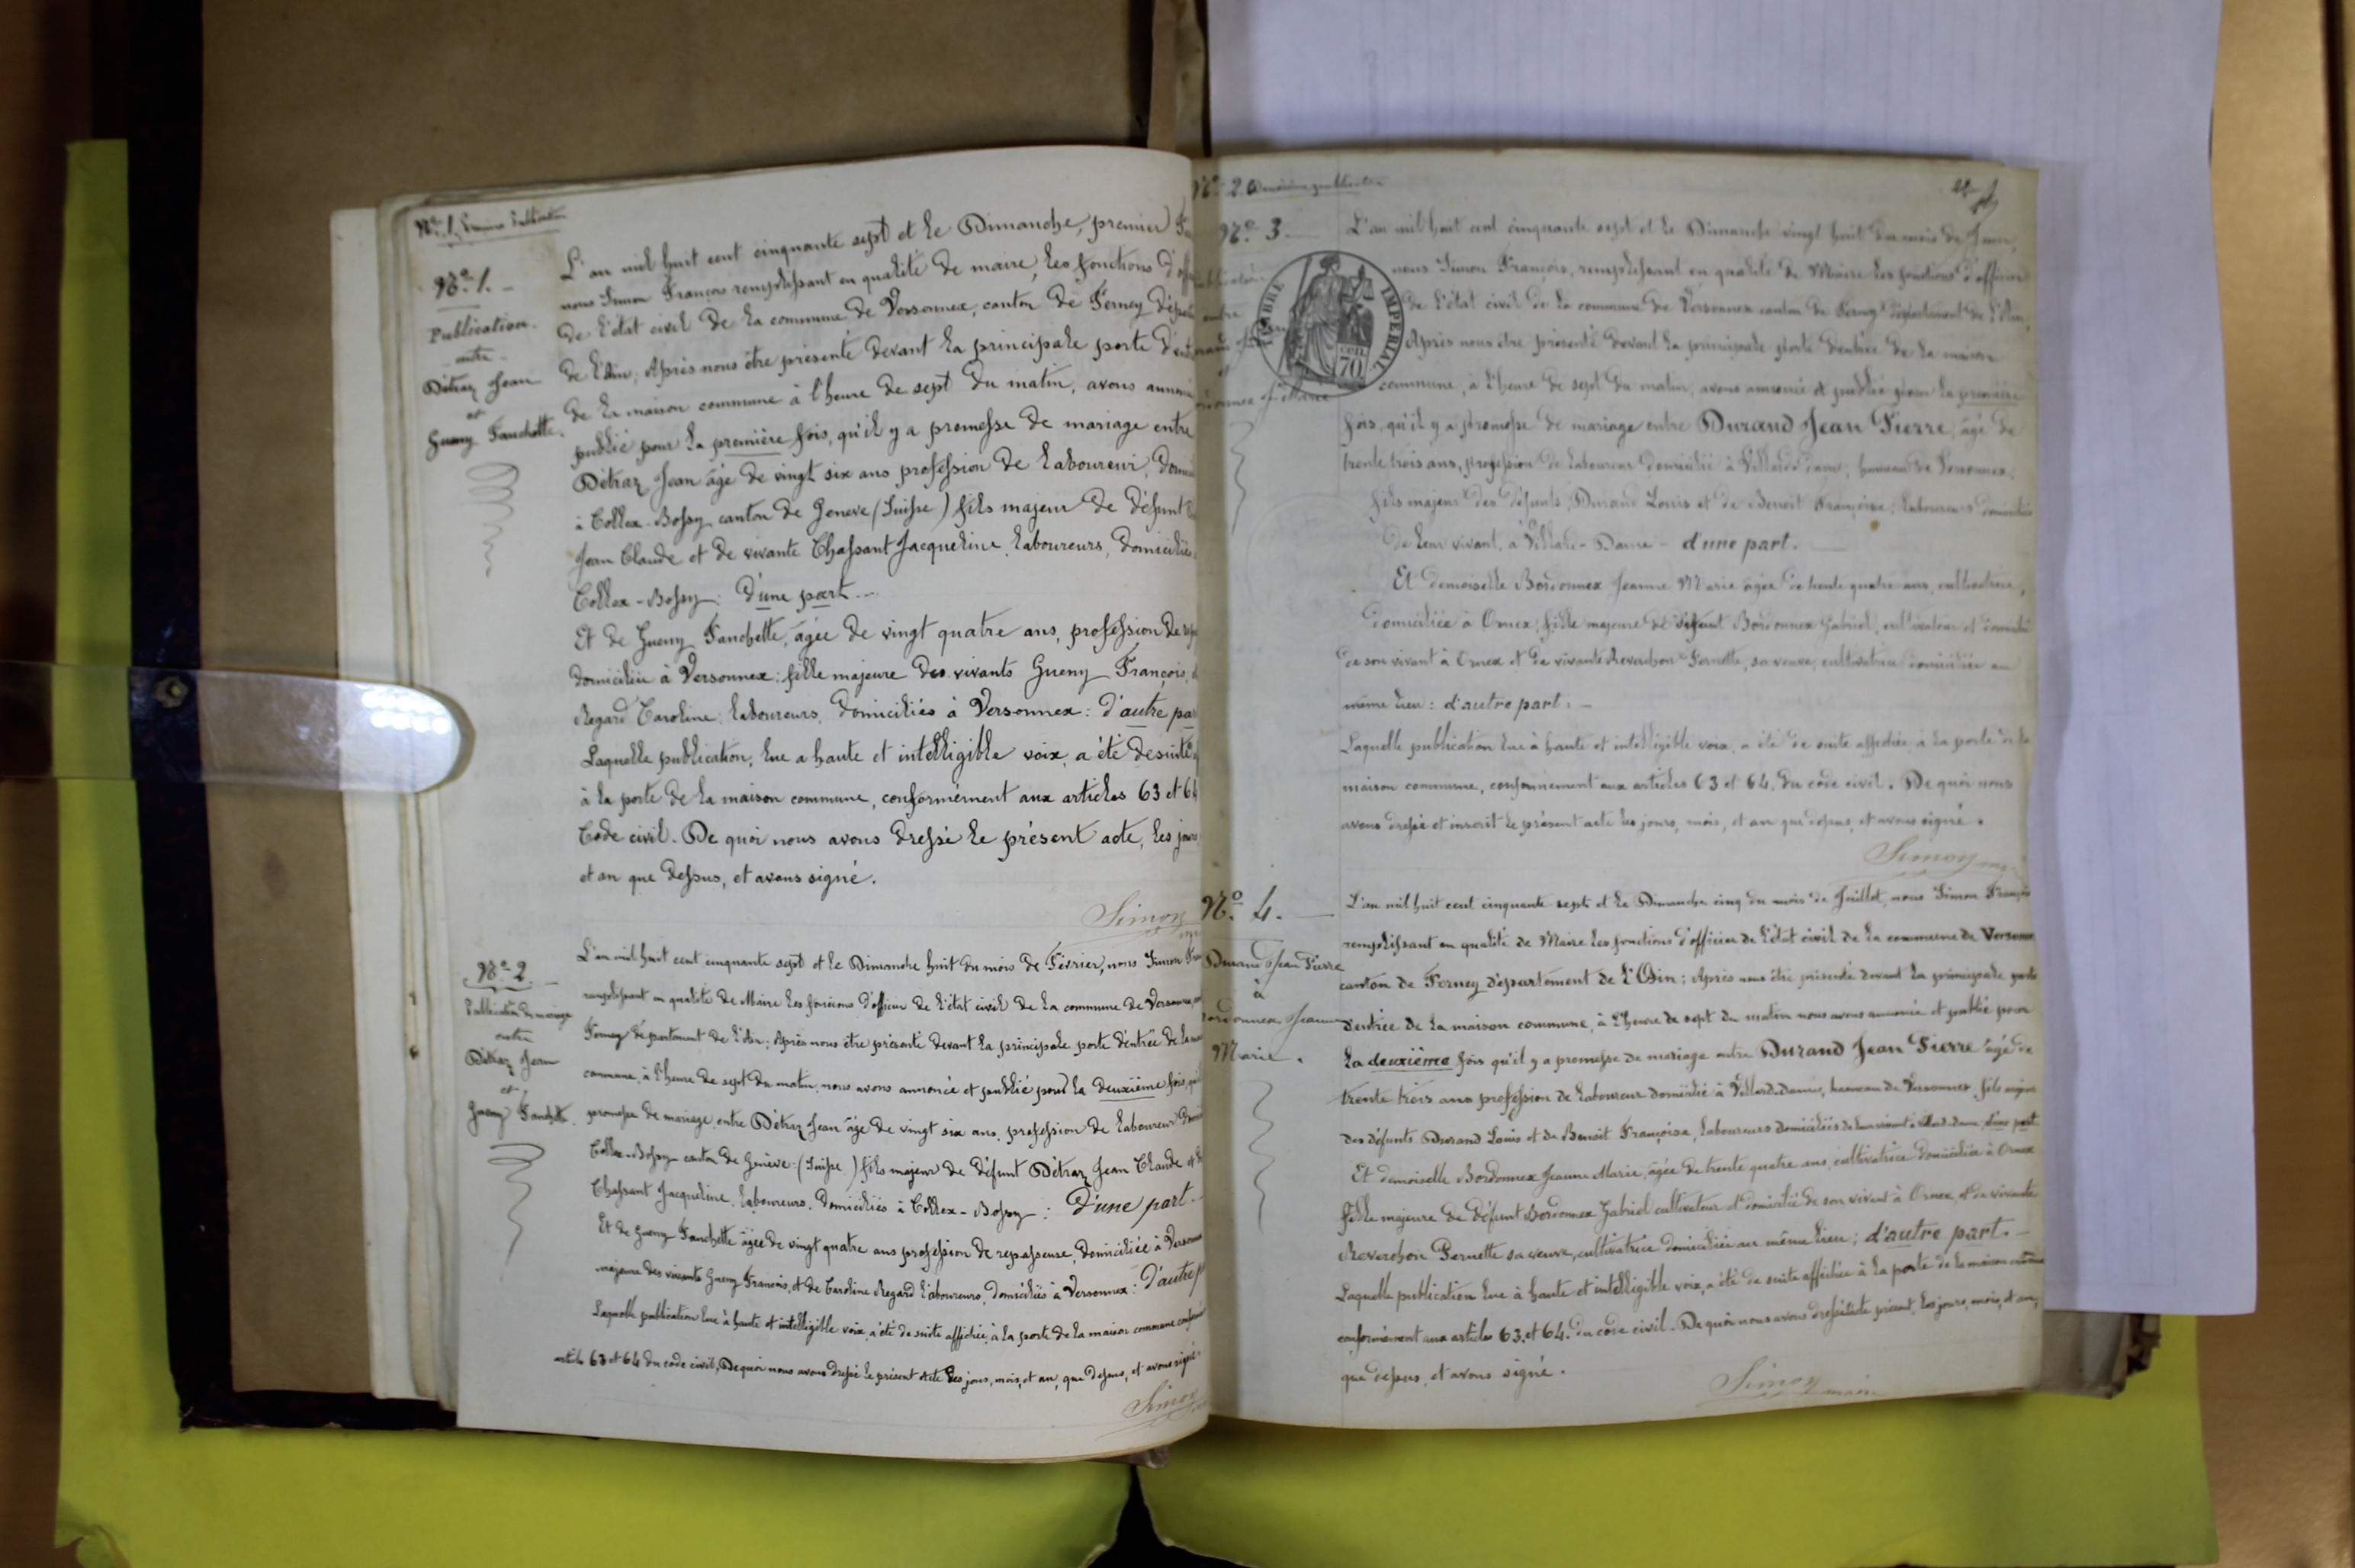 Nº 1. Première Publication
Nº 1. -
Publication.
entre -
Détraz Jean
et
Gueny Fanchette.
L'an mil huit cent cinquante sept et le Dimanche, premier
nous Simon François remplissant en qualité de maire, les fonctions d'off
de l'état civil de la commune de Versonnex, canton de Ferney dépar
de l'Ain; Après nous être présenté devant la principale porte d'ent
de la maison commune à l'heure de sept du matin, avons annon
publié pour la première fois, qu'il y a promesse de mariage entre
Détraz Jean âgé de vingt six ans profession de laboureur, domi
à Collex-Bossy canton de Geneve (Suisse) fils majeur de défunt
Jean Claude et de vivante Chassant Jacqueline, laboureurs, domiciliés
Collex-Bossy: d'une part -
Et de Gueny Fanchette, âgée de vingt quatre ans, profession de rep
domiciliée à Versonnex: fille majeure des vivants Gueny François,
Regard Caroline: laboureurs, domiciliés à Versonnex: d'autre pa
Laquelle publication, lue a haute et intelligible voix, a été desuite
à la porte de la maison commune, conformément aux articles 63 et 64
Code civil. De quoi nous avons dressé le présent acte, les jours
et an que dessus, et avons signé.
Simon
Nº 2.
Publication de mariage
entre
Détraz Jean
et
Gueny Fanchette.
L'an mil huit cent cinquante sept et le Dimanche huit du mois de Février, nous Simon Fran
remplissant en qualité de Maire les fonctions d'officier de l'état civil de la commune de Versonnex
Ferney département de l'Ain; Après nous être présenté devant la principale porte d'entrée de la mai
commune, à l'heure de sept du matin, nous avons annoncé et publié pour la deuxième fois, qu'il
promesse de mariage entre Détraz Jean âgé de vingt six ans, profession de laboureur domi
Collex-Bossy canton de Genève: (Suisse) fils majeur de défunt Détraz Jean Claude et de
Chassant Jacqueline, laboureurs, domiciliés à Collex-Bossy: d'une part.
Et de Gueny Fanchette âgée de vingt quatre ans profession de repasseuse, domiciliée à Versonn
majeure des vivants Gueny François, et de Caroline Regard laboureurs, domiciliés à Versonnex: d'autre p
Laquelle publication lue à haute et intelligible voix, a été de suite affichée, à la porte de la maison commune conform
article 63 et 64 du code civil, De quoi nous avons dressé le présent acte les jours, mois, et an, que dessus, et avons signé.
Simon
Nº 2. Deuxième publication
Nº 3.
TIMBRE IMPERIAL
70
L'an mil huit cent cinquante sept et le Dimanche vingt huit du mois de Juin,
nous Simon François, remplissant en qualité de Maire les fonctions d'officier
de l'état civil de la commune de Versonnex canton de Ferney département de l'Ain,
Après nous être présenté devant la principale porte d'entrée de la maison
commune, à l'heure de sept du matin, avons annoncé et publié pour la première
fois, qu'il y a promesse de mariage entre Durand Jean Pierre, âgé de
trente trois ans, profession de laboureur domicilié à Villard-dame, hameau de Versonnex.
fils majeur des défunts Durand Louis et de Benoit Françoise, laboureurs domiciliés
de leur vivant, à Villard-Dame - d'une part.
Et demoiselle Bordonnex Jeanne Marie âgée de trente quatre ans, cultivatrice,
domiciliée à Ornex, fille majeure de défunt Bordonnex Gabriel, cultivateur et domicilié
de son vivant à Ornex et de vivante Reverchon Pernette, sa veuve, cultivatrice domiciliée au
même lieu: d'autre part. -
Laquelle publication lue à haute et intelligible voix, a été de suite affichée, à la porte de la
maison commune, conformément aux articles 63 et 64. du code civil. De quoi nous
avons dressé et inscrit le présent acte les jours, mois, et an que dessus, et avons signé.
Simon
Nº 4.
Durand Jean Pierre
à
Bordonnex Jeanne
Marie.
L'an mil huit cent cinquante sept et le Dimanche cinq du mois de Juillet, nous Simon François
remplissant en qualité de Maire les fonctions d'officier de l'état civil de la commune de Versonnex
canton de Ferney département de l'Ain; Après nous être présenté devant la principale porte
d'entrée de la maison commune, à l'heure de sept du matin nous avons annoncé et publié pour
la deuxième fois qu'il y a promesse de mariage entre Durand Jean Pierre âgé de
trente trois ans profession de laboureur domicilié à Villard-dame, hameau de Versonnex. fils majeur
des défunts Durand Louis et de Benoit Françoise, laboureurs domiciliés de leur vivant à Villard-Dame, d'une part.
Et demoiselle Bordonnex Jeanne Marie, âgée de trente quatre ans, cultivatrice domiciliée à Ornex
fille majeure de défunt Bordonnex Gabriel cultivateur et domicilié de son vivant à Ornex, et de vivante
Reverchon Pernette sa veuve, cultivatrice domiciliée au même lieu; d'autre part. -
Laquelle publication lue à haute et intelligible voix, a été de suite affichée à la porte de la maison commune
conformément aux articles 63. et 64. du code civil. De quoi nous avons dressé le présent, les jours, mois, et an,
que dessus, et avons signé.
Simon maire